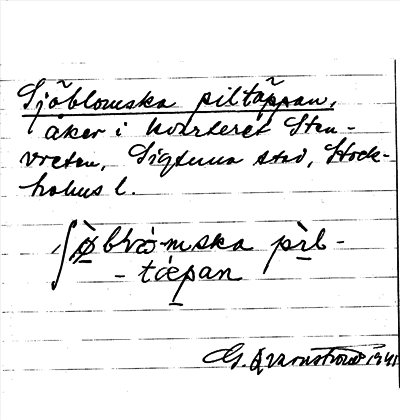 Sjöblomska piltäppan,
åker i kvarteret Sten-
vreten, Sigtuna stad, Stock-
holms l.
ʃø̀blʷȯmska pìl-
-tæpan
G. Qvarnström 1941